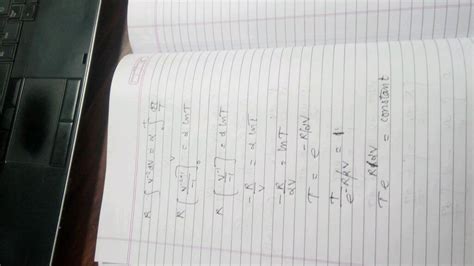 R ∫ V⁻² dV = α ∫₀ᵀ dT/T
R [V⁻²⁺¹/-1]₀ⱽ = α lnT
R [V⁻¹/-1] = α lnT
-R/V = α lnT
-R/αV = lnT
T = e^(-R/αV)
T/e^(-R/αV) = 1
T e^(R/αV) = constant